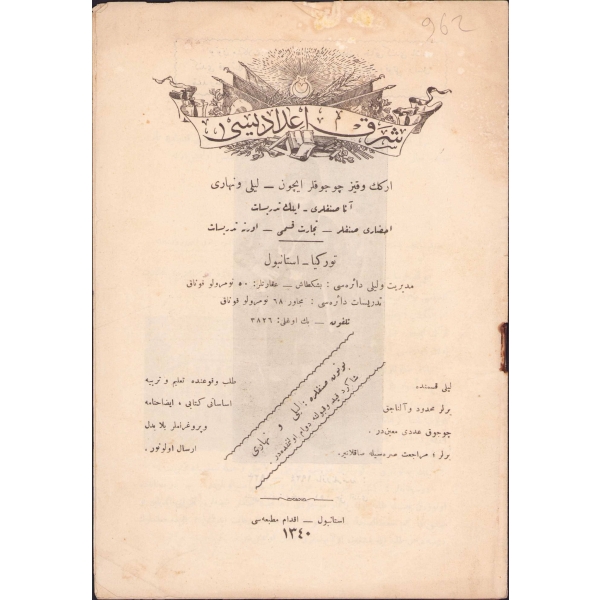 962
شرق اعدادیسی
ارکك وقیز چوجوقلر ایچون — لیلی ونهاری
آنا صنفلری - ایلك تدریسات
احضاری صنفلر — تجارت قسمی — اورته تدریسات
تورکیا - استانبول
مدیریت ولیلی دائره‌سی : بشکطاش — عقارتلر: ٥٠ نومرولو قوناق
تدریسات دائره‌سی : مجاور ٦٨ نومرولو قوناق
تلفون — بك اوغلی: ٣٨٢٦
بوتون صنفلره : لیلی و نهاری
شاکرد قید وقبولنه دوام اولنمقده‌در .
لیلی قسمنده
یرلر محدود وآلناجق
چوجوق عددی معین‌در .
یرلر ؛ مراجعت صره‌سیله صاقلانیر .
طلب وقوعنده تعلیم و تربیه
اساساتی کتابی ، ایضاحنامه
وپروغراملر بلا بدل
ارسال اولونور .
استانبول — اقدام مطبعه‌سی
١٣٤٠